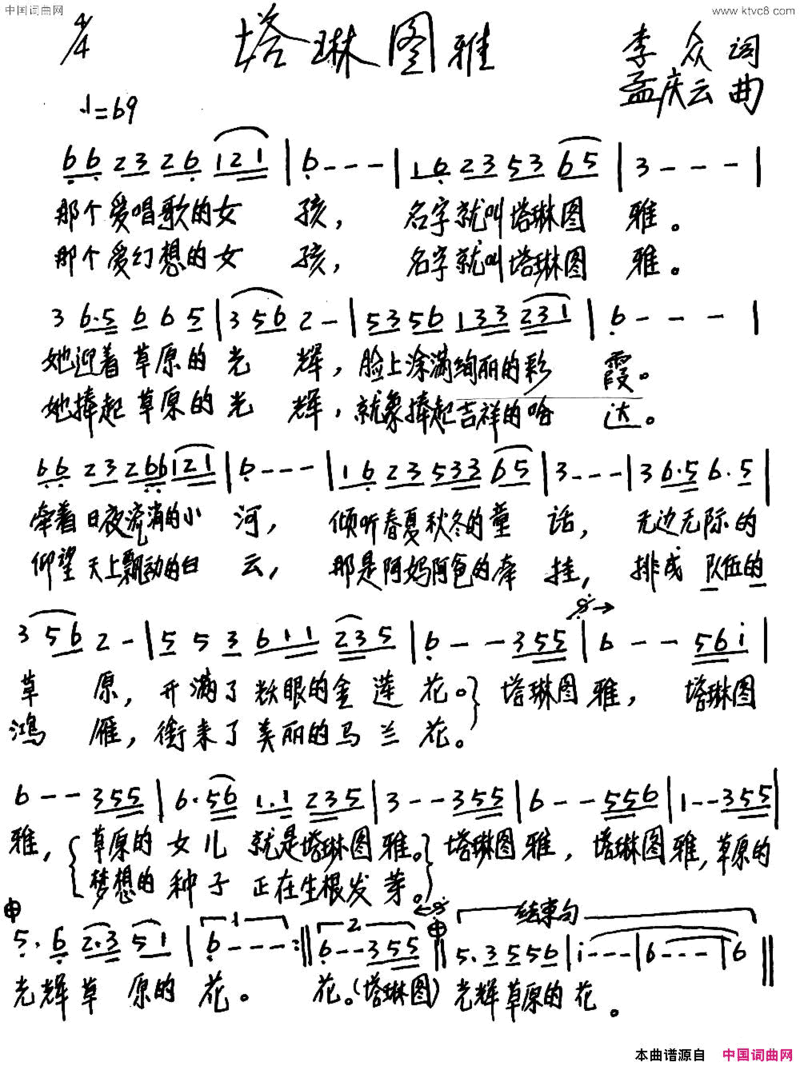 中国词曲网
www.ktvc8.com
4/4
塔琳图雅
李众词
孟庆云曲
♩=69
6 6 2 3 2 6 1 2 1 | 6 - - - | 1 6 2 3 5 3 6 5 | 3 - - - |
那个爱唱歌的女 孩， 名字就叫塔琳图 雅。
那个爱幻想的女 孩， 名字就叫塔琳图 雅。
3 6·5 6 6 5 | 3 5 6 2 - | 5 3 5 6 1 3 3 2 3 1 | 6 - - - |
她迎着草原的光 辉，脸上涂满绚丽的彩 霞。
她捧起草原的光 辉，就象捧起吉祥的哈 达。
6 6 2 3 2 6 6 1 2 1 | 6 - - - | 1 6 2 3 5 3 3 6 5 | 3 - - - | 3 6·5 6·5 |
牵着日夜流淌的小 河， 倾听春夏秋冬的童 话， 无边无际的
仰望天上飘动的白 云， 那是阿妈阿爸的牵 挂， 排成队伍的
3 5 6 2 - | 5 5 3 6 1 1 2 3 5 | 6 - - 3 5 5 | 6 - - 5 6 i |
草 原，开满了 的金莲花。} 塔琳图雅， 塔琳图
鸿 雁，衔来了美丽的马兰花。
6 - - 3 5 5 | 6·5 6 1·1 2 3 5 | 3 - - 3 5 5 | 6 - - 5 5 6 | 1 - - 3 5 5 |
雅，{草原的女儿 就是塔琳图雅。} 塔琳图雅，塔琳图雅，草原的
梦想的种子 正在生根发芽。
5·6 2·3 5 1 | 1 6 - - - :|| 2 6 - - 3 5 5 || 结束句 5·3 5 5 6 | i - - - | 6 - - - | 6 ||
光辉草 原的 花。 花。(塔琳图)光辉草原的花。
本曲谱源自 中国词曲网